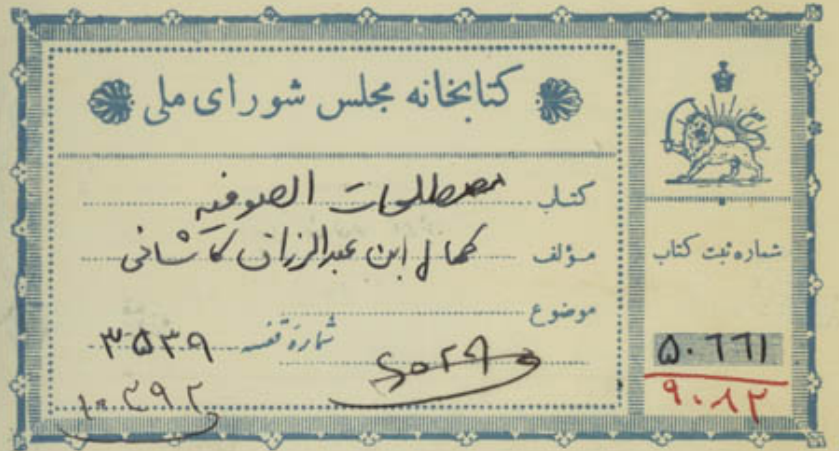 کتابخانه مجلس شورای ملی
کتاب مصطلحات الصوفیه
مؤلف کمال ابن عبدالرزاق کاشانی
موضوع
شمارهٔ قفسه ۳۵۳۹
شماره ثبت کتاب
۵۰۶۶۱
۹۰۸۲